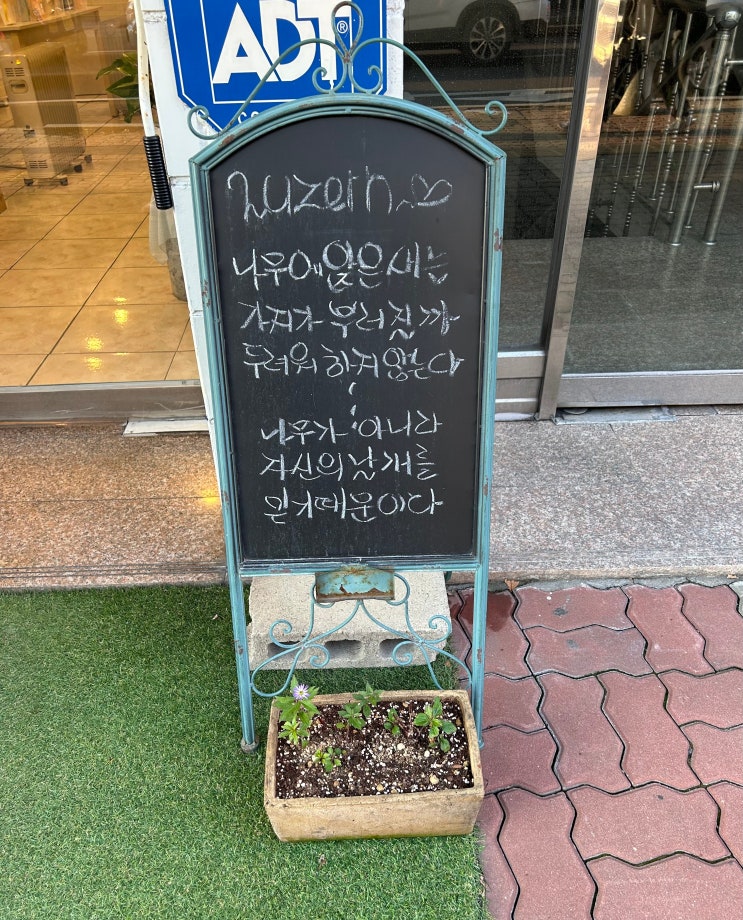 ADT®
Luzern~♡
나무에 앉은 새는
가지가 부러질까
두려워 하지 않는다
나무가 아니라
자신의 날개를
믿기 때문이다